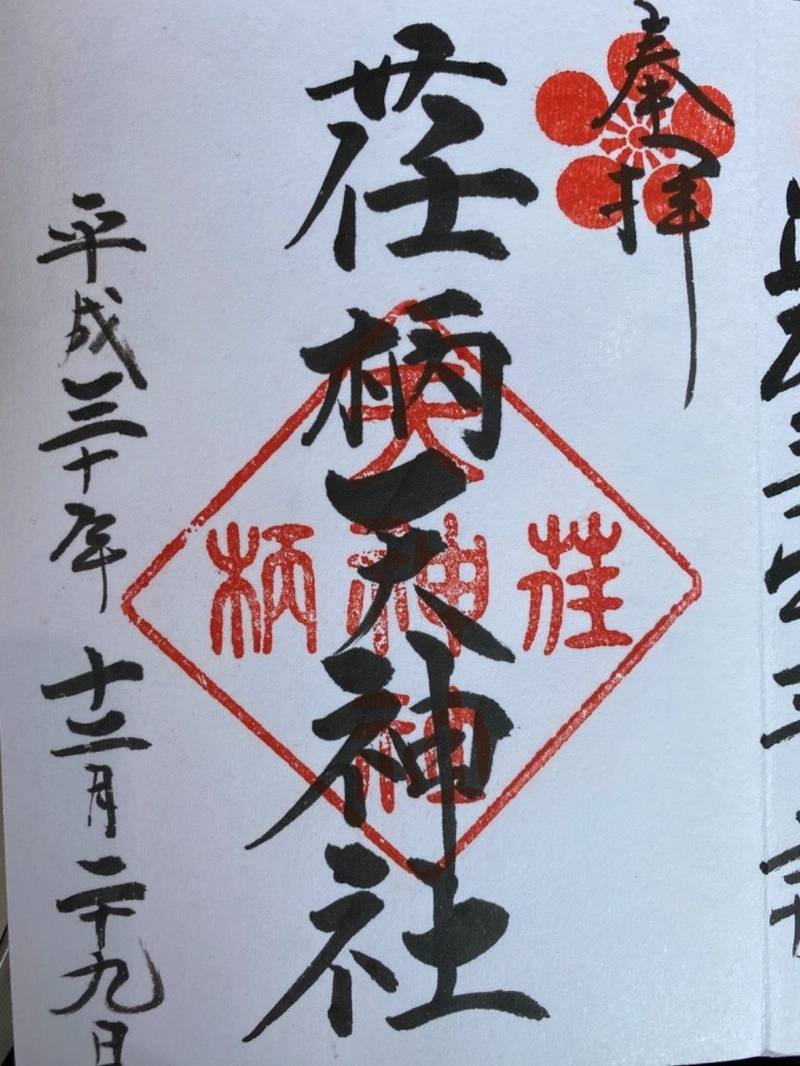 奉拝
荏柄天神社
平成三十年 十二月二十九日
荏
天神
柄